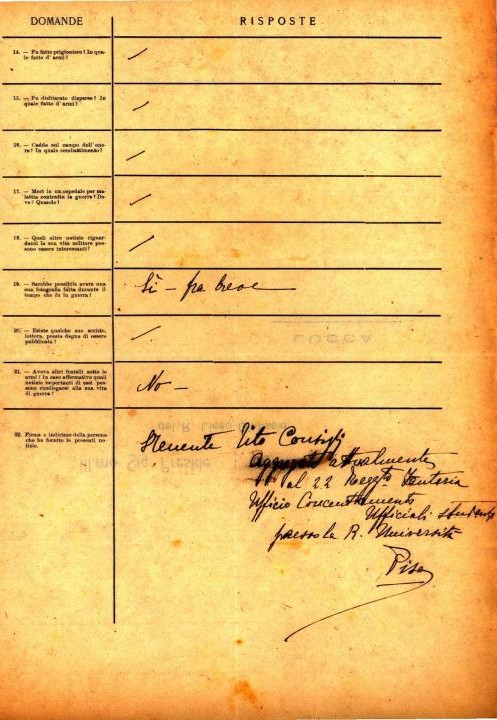 DOMANDE
RISPOSTE
14. — Fu fatto prigioniero? In qua-
le fatto d'armi?
/
15. — Fu dichiarato disperso? In
quale fatto d'armi?
/
16. — Cadde sul campo dell'ono-
re? In quale combattimento?
/
17. — Morì in un ospedale per ma-
lattia contratta in guerra? Do-
ve? Quando?
/
18. — Quali altre notizie riguar-
danti la sua vita militare pos-
sono essere interessanti?
/
19. — Sarebbe possibile avere una
sua fotografia fatta durante il
tempo che fu in guerra?
Sì - fra breve
20. — Esiste qualche suo scritto,
lettera, poesia degna di essere
pubblicata?
/.
LUCCA
21. — Aveva altri fratelli sotto le
armi? In caso affermativo quali
notizie importanti di essi pos-
sono ricollegarsi alla sua vita
di guerra?
No -
del R. Liceo
22. Firma e indirizzo della persona
che ha fornito le presenti no-
tizie.
Ill.mo Sig. Preside
Tenente Vito Consigli
Aggregato attualmente
al 22 Regg.to Fanteria
Ufficio Concentramento
Ufficiali studenti
presso la R. Università
Pisa